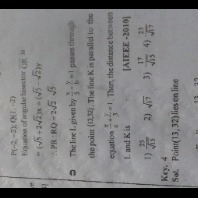 P(-2, -2), Q(1, -2)
Equation of angular bisector OR is
(√5 + 2√2)x = (√5 - √2)y
∴ PR : RQ = 2√2 : √5
The line L given by x/5 + y/b = 1 passes through
the point (12,32). The line K is parallel to the
equation x/c + y/3 = 1 Then, the distance between
L and K is [AIEEE -2010]
1) 23/√15 2) √17 3) 17/√15 4) 23/√17
Key. 4
Sol. Point(13, 32) lies on line